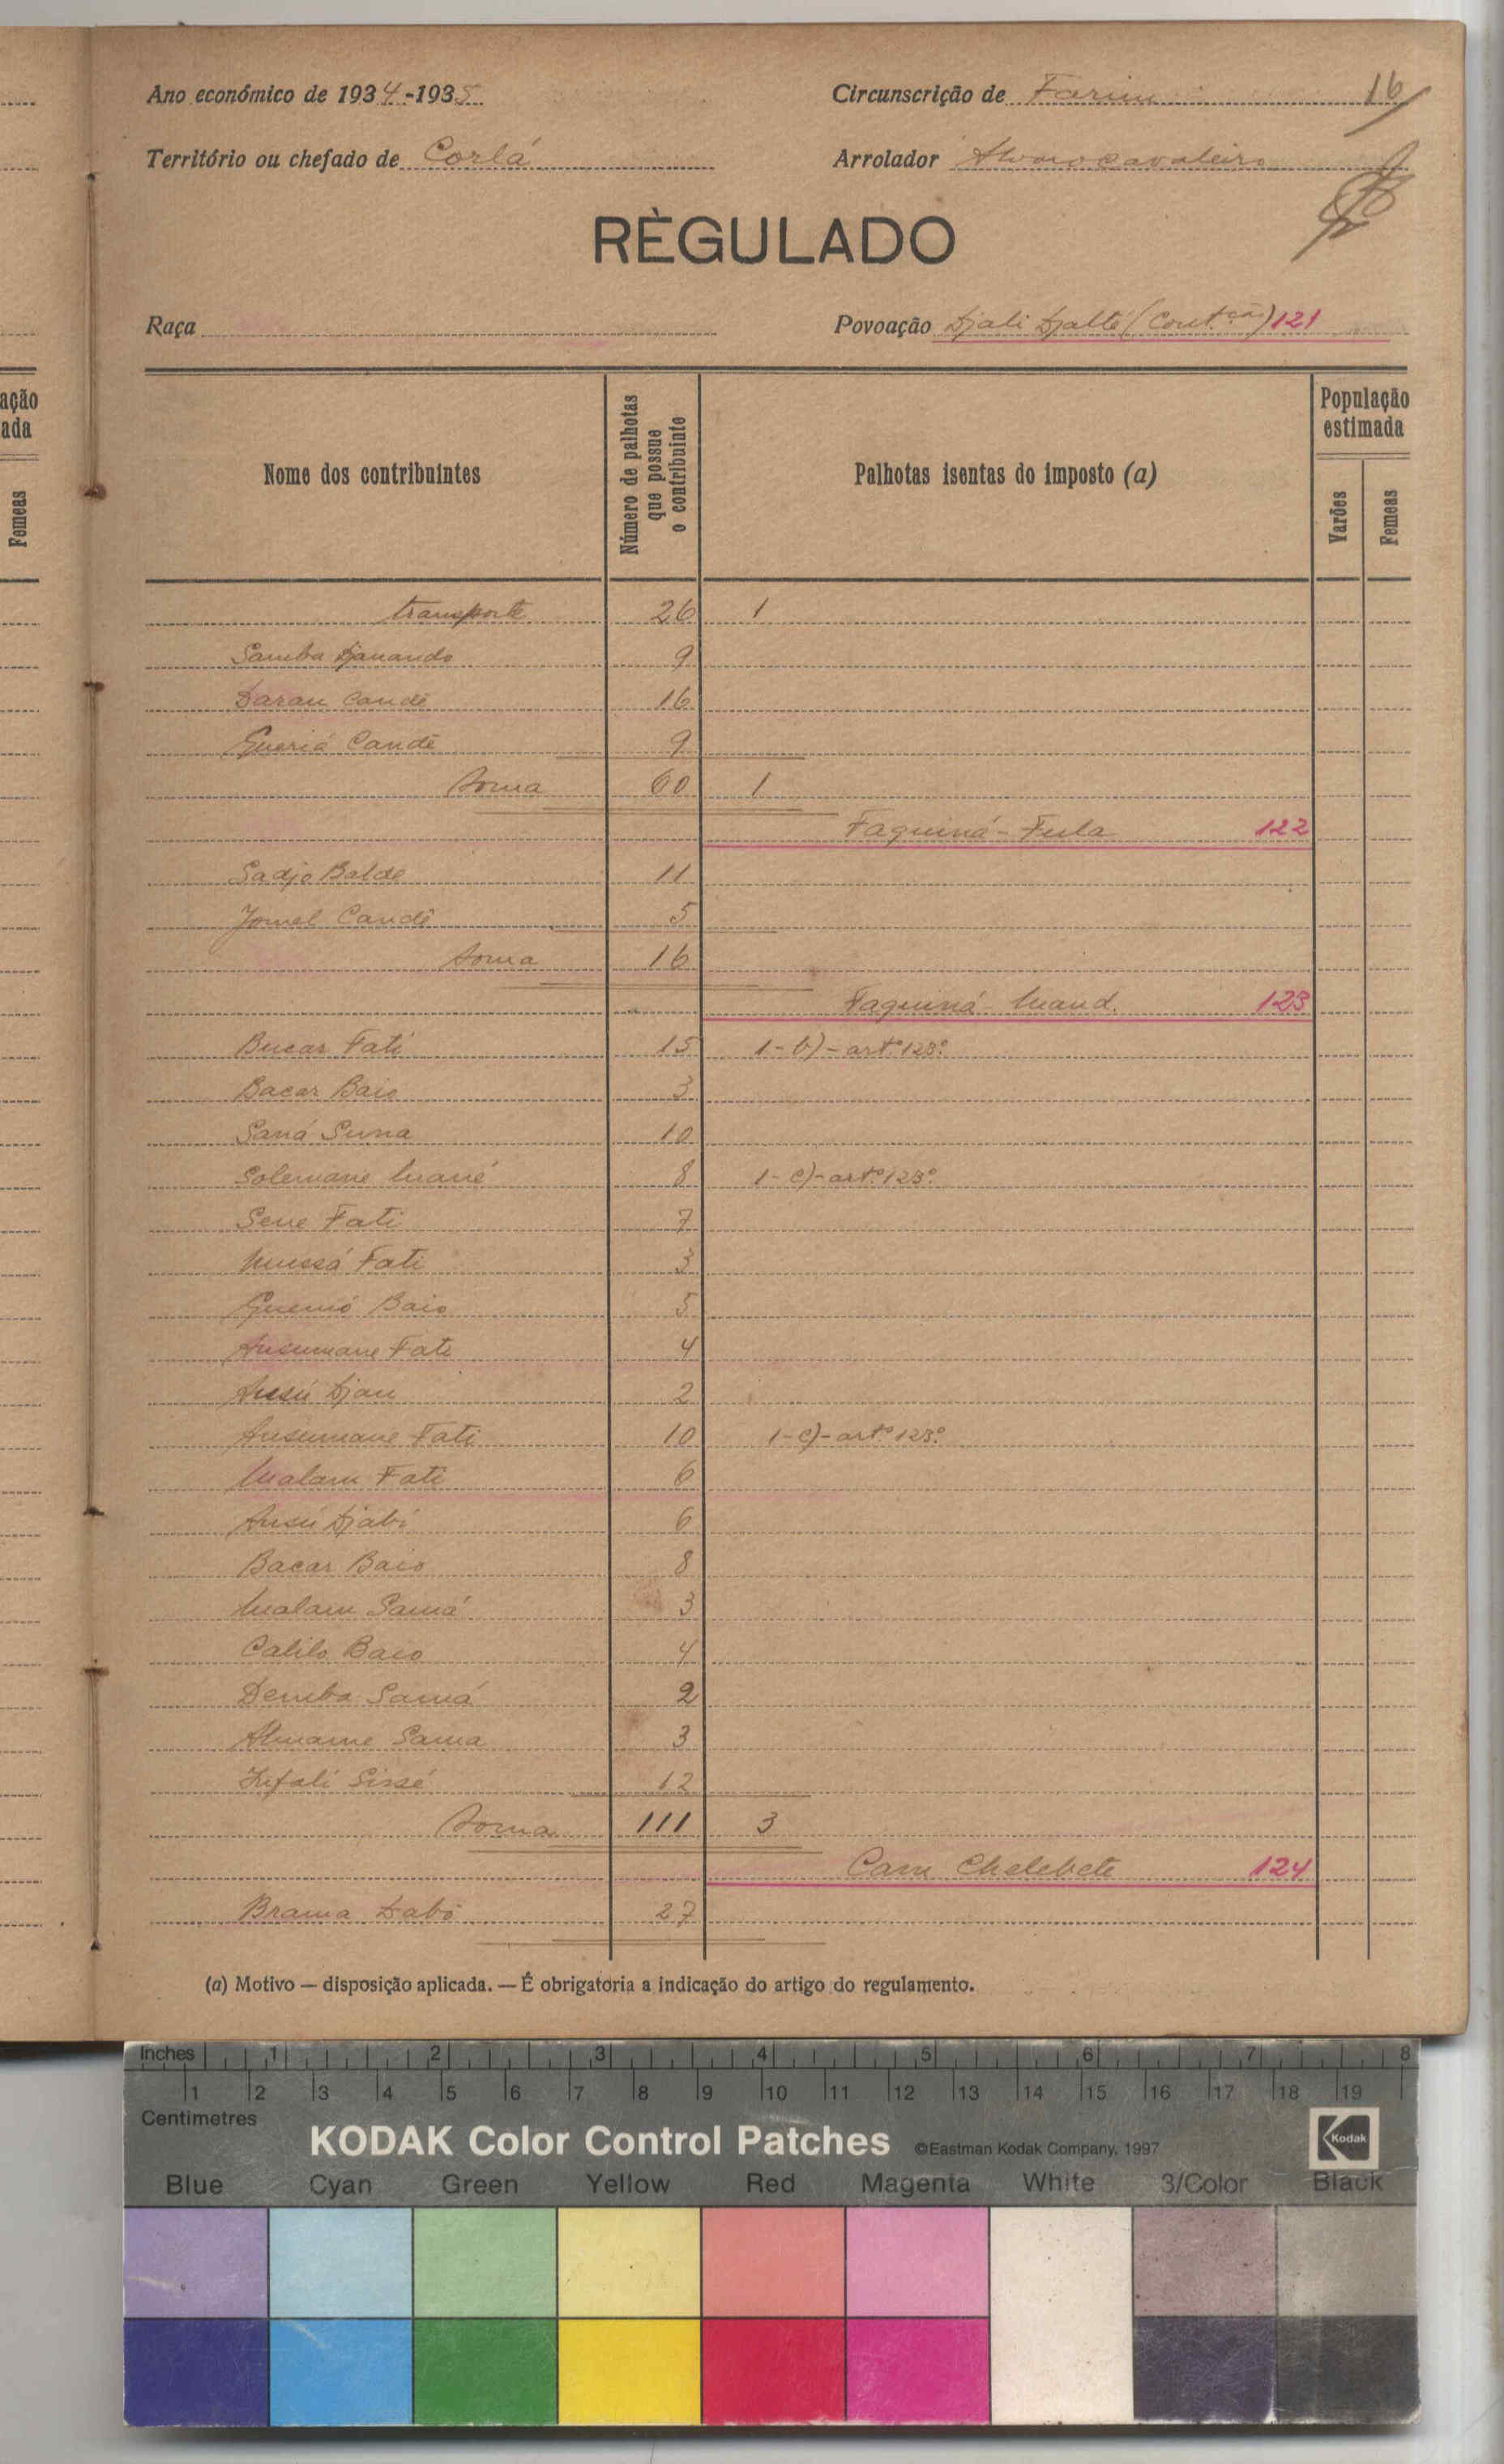 Ano económico de 1934-1935
Circunscrição de Farim 16
Território ou chefado de Corlá
Arrolador Alvaro Cavaleiro
RÈGULADO
Raça
Povoação Djali Djalté (Cont.ção) 121
Nome dos contribuintes
Número de palhotas que possue o contribuinte
Palhotas isentas do imposto (a)
População estimada
Varões
Femeas
ação
ada
Femeas
transporte 26 1
Samba Djanando 9
Daran Candê 16
Queriá Candê 9
Soma 60 1
Faquiná-Fula 122
Sadjo Balde 11
Jomel Candê 5
Soma 16
Faquiná Mand. 123
Bucar Fati 15 1-b)-art.º 123º.
Bacar Baio 3
Saná Suna 10
Solemane Mané 8 1-c)-art.º 123º.
Sene Fati 7
Mussá Fati 3
Quemó Baio 5
Ansumane Fati 4
Ansú Djau 2
Ansumane Fati 10 1-c)-art.º 123º.
Malam Fati 6
Ansú Djabi 6
Bacar Baio 8
Malam Samá 3
Calilo Baio 4
Demba Samá 2
Almame Sama 3
Infali Sissé 12
Soma 111 3
Cam Chelebete 124
Brama Dabó 27
(a) Motivo — disposição aplicada. — É obrigatoria a indicação do artigo do regulamento.
Inches 1 2 3 4 5 6 7 8
1 2 3 4 5 6 7 8 9 10 11 12 13 14 15 16 17 18 19
Centimetres
KODAK Color Control Patches ©Eastman Kodak Company, 1997 Kodak
Blue Cyan Green Yellow Red Magenta White 3/Color Black